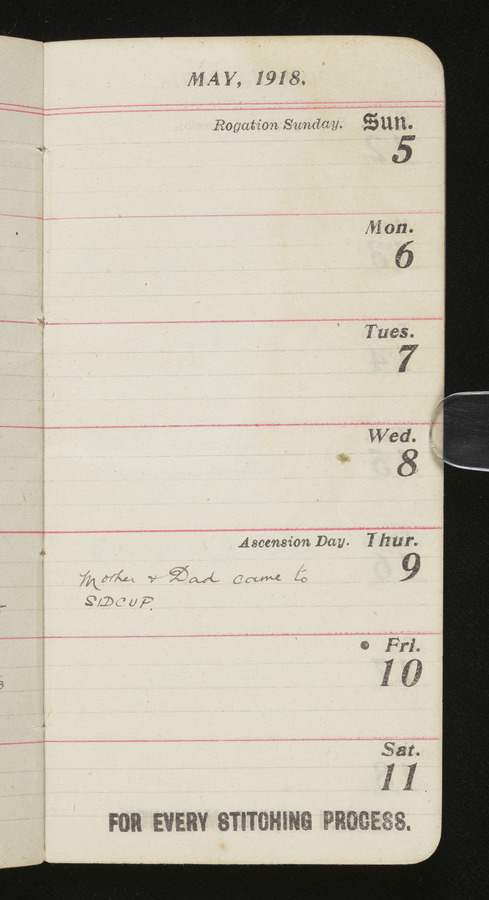 MAY, 1918.
Rogation Sunday. Sun.
5
Mon.
6
Tues.
7
Wed.
8
Ascension Day. Thur.
9
Mother & Dad came to
SIDCUP.
Fri.
10
Sat.
11
FOR EVERY STITCHING PROCESS.